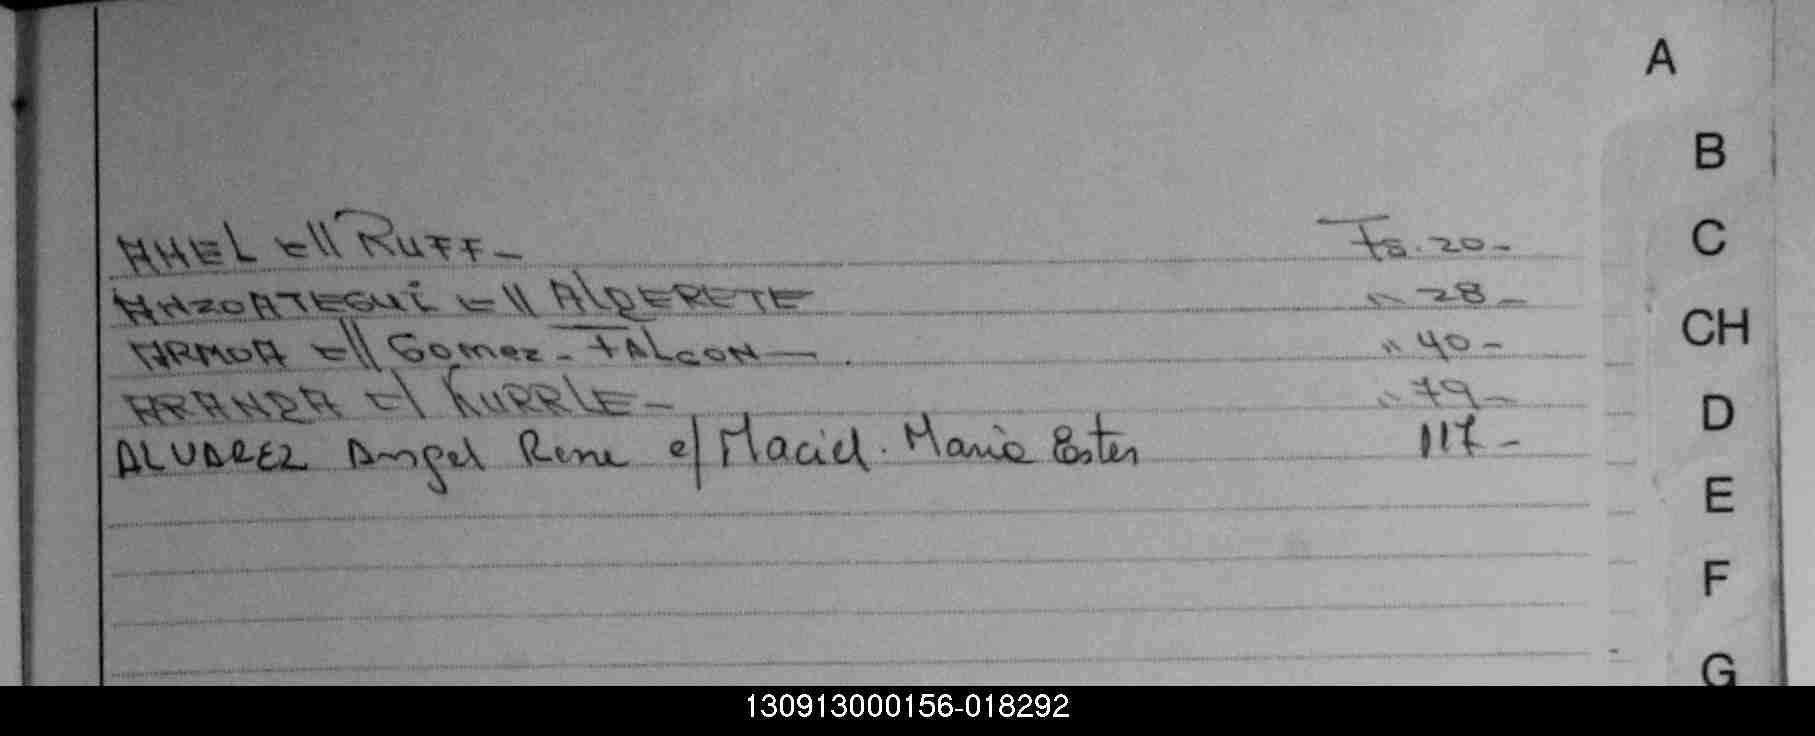 A
B
C
CH
D
E
F
G
AHEL c// RUFF - Fs. 20 -
ANZOATEGUI c// ALDERETE " 28 -
ARMOA c// Gomez - FALCON - . " 40 -
ARANDA c/ KURRLE - " 79 -
ALVAREZ Angel Rene c/ Maciel. Maria Ester 117 -
130913000156-018292